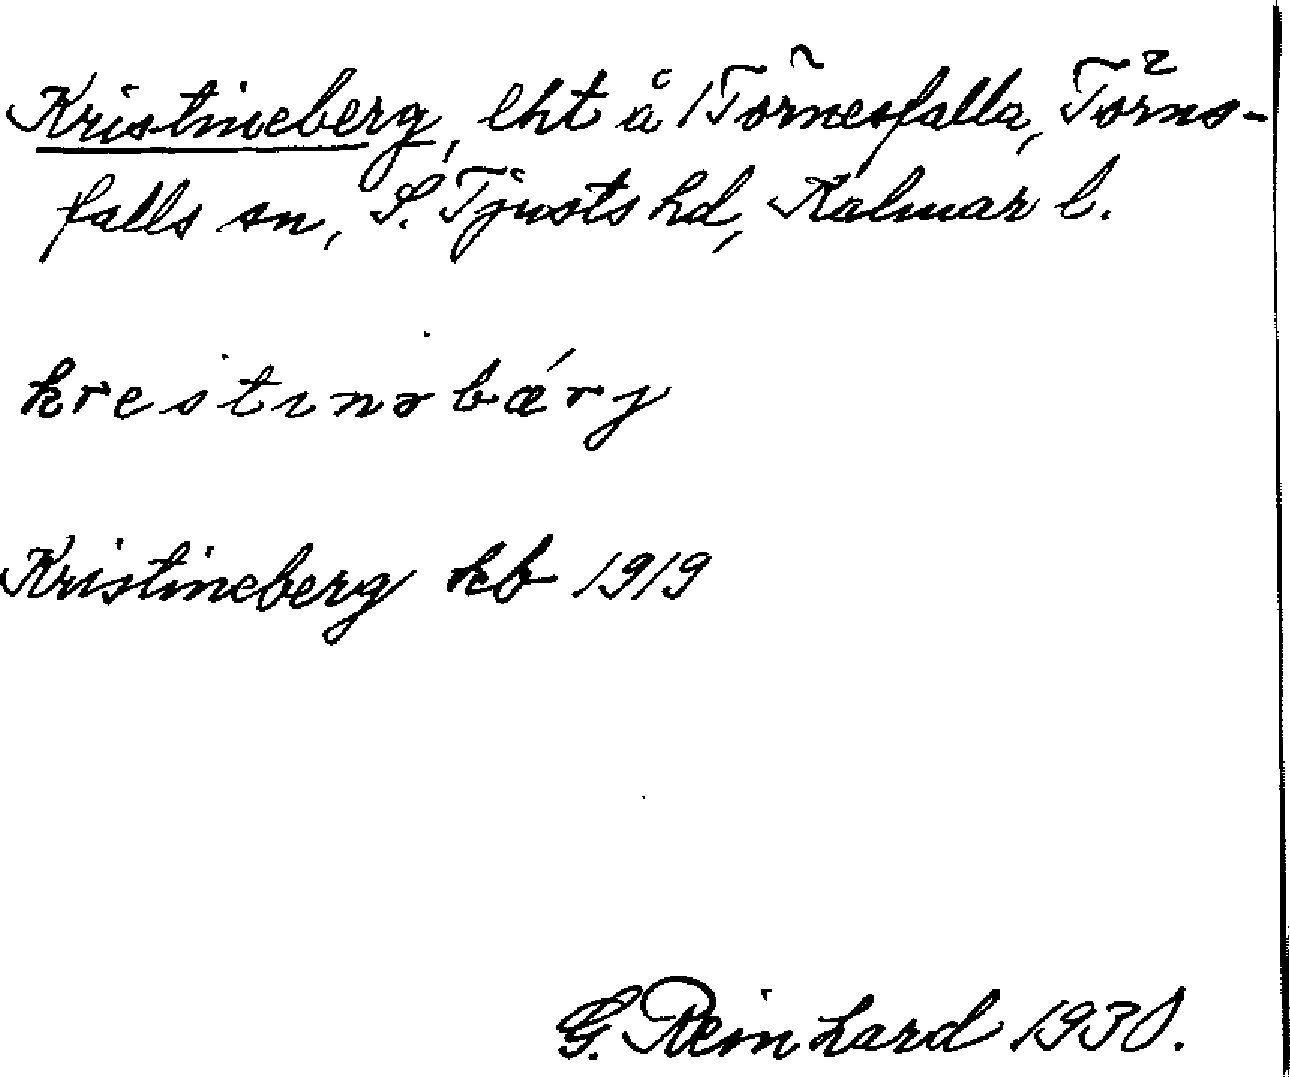 Kristineberg, lht å Törnesfalla, Törns-
falls sn, S. Tjusts hd, Kalmar l.
krestinəbǽrj
Kristineberg kb 1919
G. Reinhard 1930.